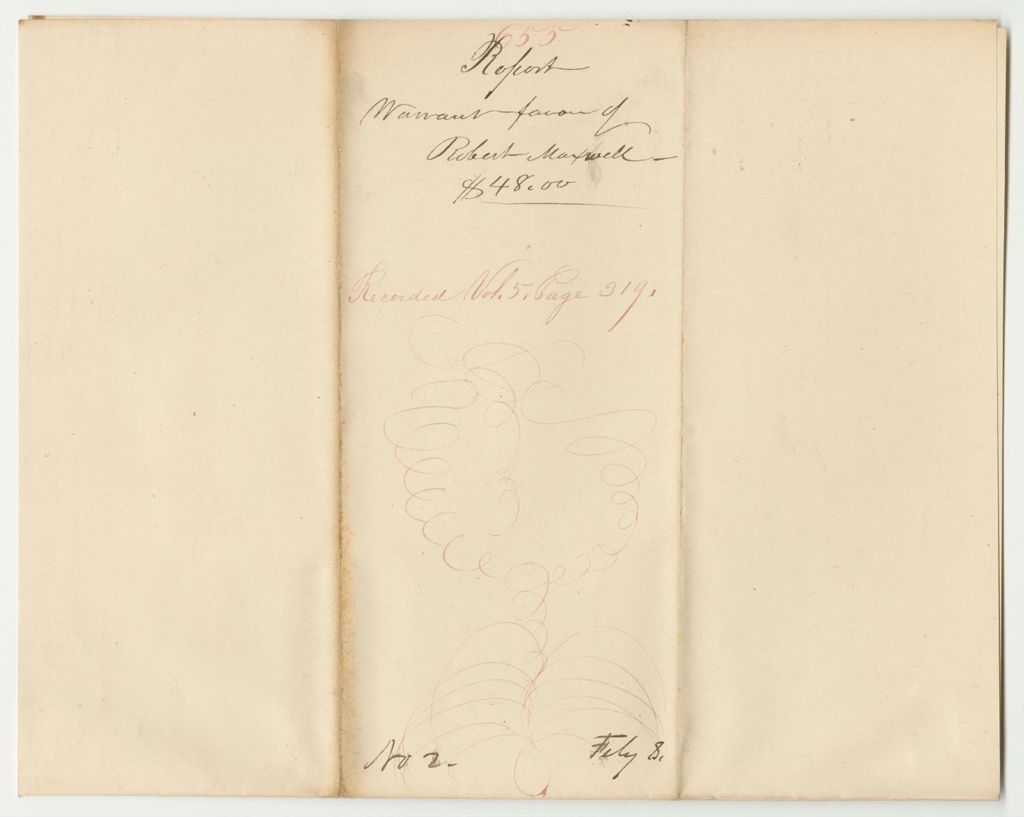 655
Report
Warrant favour of
Robert Maxwell —
$48.00
Recorded Vol. 5. Page 319.
No 2-
Feby 8.